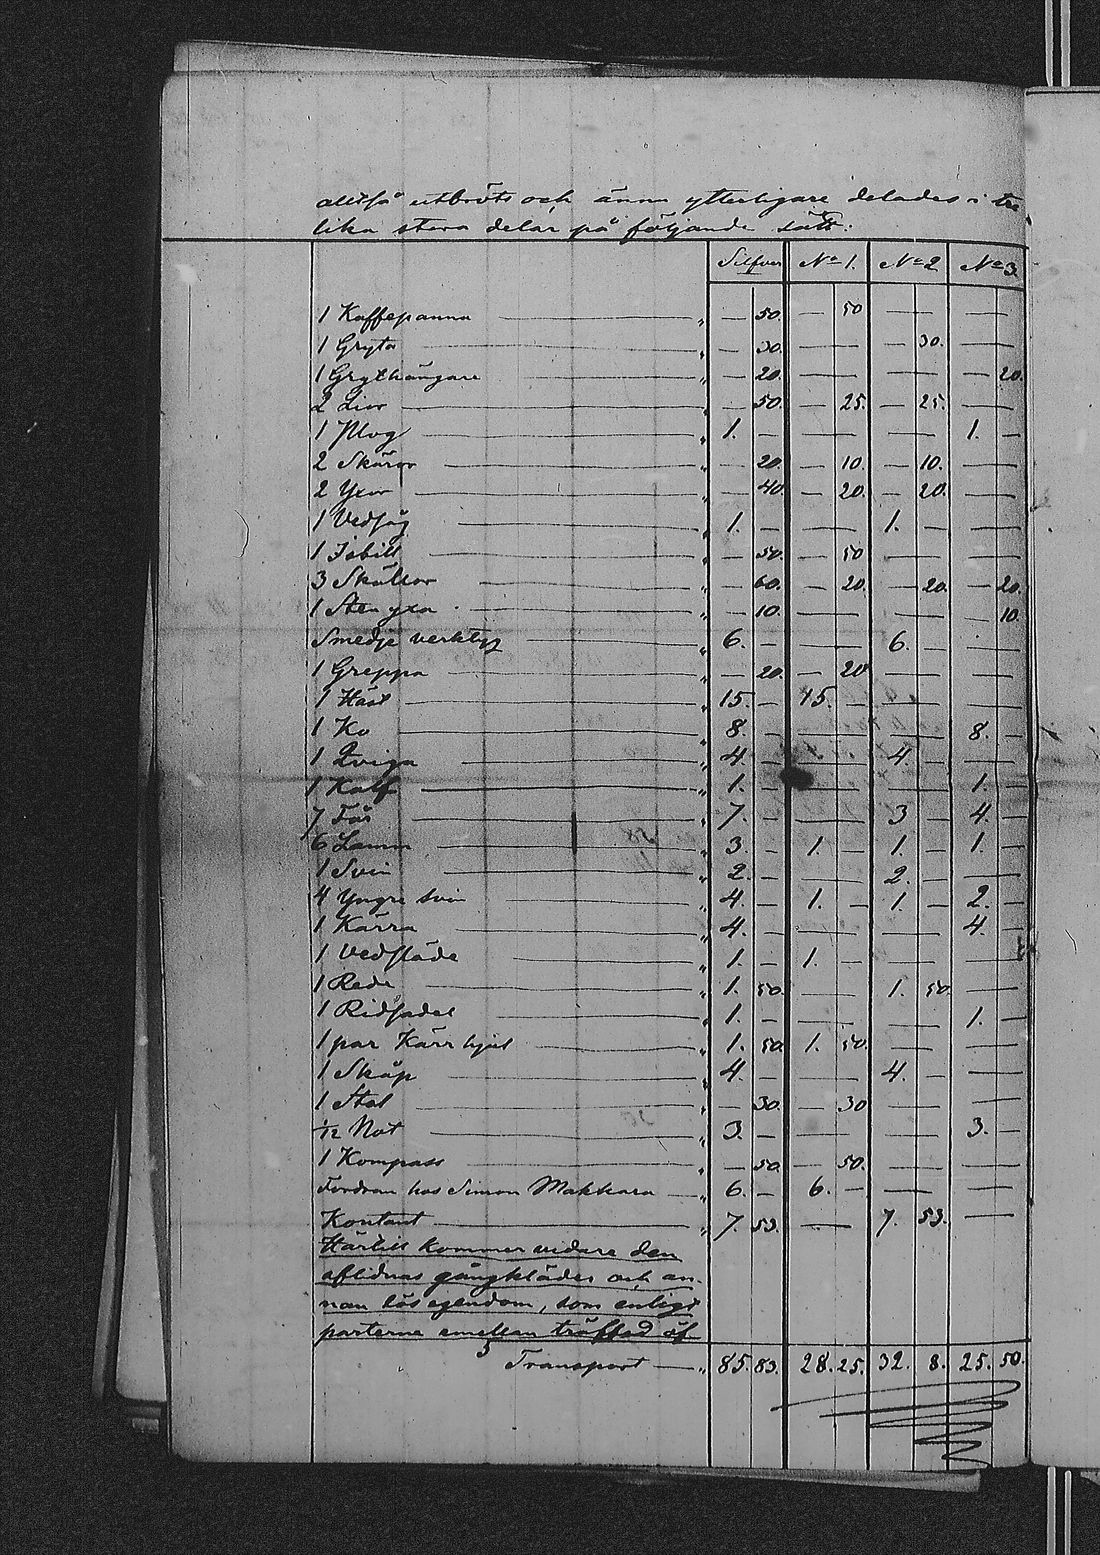 alltså utbröts och ännu ytterligare delades i tre
lika stora delar på följande sätt:
Silfver No 1. No 2 No 3.
1 Kaffepanna — " — 50. — 50 — —
1 Gryta — " — 30. — — 30. —
1 Grythängare — " — 20. — — — 20.
2 Lior — " — 50. — 25. — 25. —
1 Plog — " 1. — — — 1. —
2 Skäror — " — 20. — 10. — 10. —
2 Yxor — " — 40. — 20. — 20. —
1 Vedsåg — " 1. — — 1. — —
1 Isbill — " — 50. — 50 — —
3 Skällor — " — 60. — 20. — 20. — 20.
1 Sten yxa — " — 10. — — — 10.
Smedje verktyg — " 6. — — 6. — —
1 Greppa — " — 20. — 20 — —
1 Häst — " 15. — 15. — — —
1 Ko — " 8. — — — 8. —
1 Qviga — " 4. — — 4 — —
1 Kalf — " 1. — — — 1. —
7 Får — " 7. — — 3 — 4. —
6 Lamm — " 3. — 1. — 1. — 1. —
1 Svin — " 2. — — 2. — —
4 Yngre svin — " 4. — 1. — 1. — 2. —
1 Kärra — " 4. — — — 4. —
1 Vedsläde — " 1. — 1. — — —
1 Rede — " 1. 50. — 1. 50. —
1 Ridsadel — " 1. — — — 1. —
1 par Kärrhjul — " 1. 50. 1. 50. — —
1 Skåp — " 4. — — 4. — —
1 Stol — " — 30. — 30 — —
1/12 Not — " 3. — — — 3. —
1 Kompass — " — 50. — 50. — —
Fordran hos Simon Makkara — " 6. — 6. — — —
Kontant — " 7. 53. — 7. 53. —
Härtill kommer vidare den
aflidnas gångkläder och an-
nan lös egendom, som enligt
parterne emellan träffad öf-
Transport — " 85. 83. 28. 25. 32. 8. 25. 50.